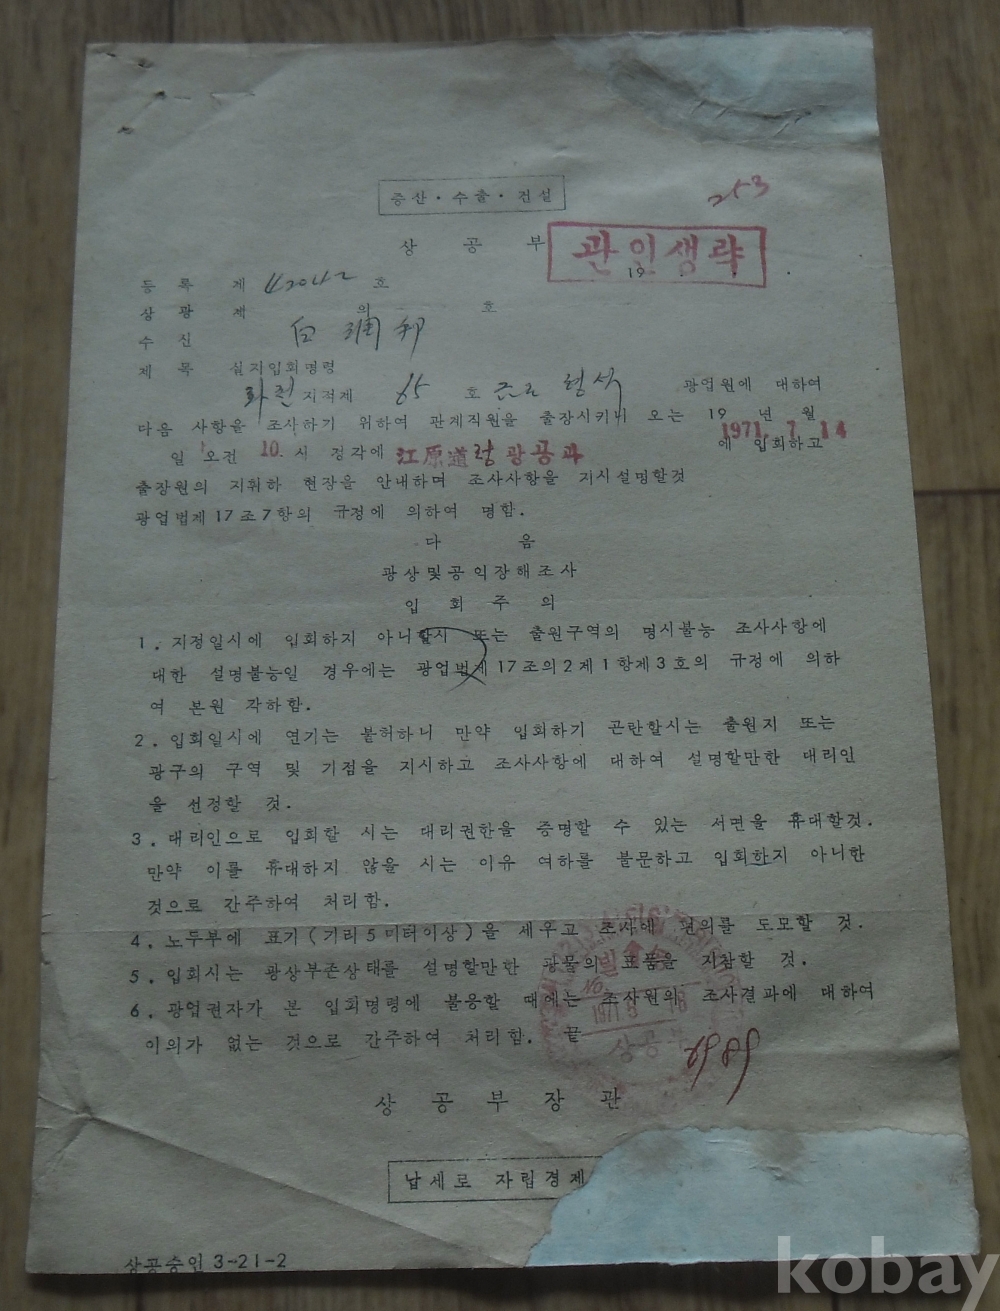 증산・수출・건설
253
상 공 부
관인생략
19
등 록 제 42042 호
상 광 제 의 호
수 신 白 潤 和
제 목 실지입회명령
화천 지적제 65 호 형석 광업원에 대하여
다음 사항을 조사하기 위하여 관계직원을 출장시키니 오는 19 년 월
1971. 7. 14
일 오전 10. 시 정각에 江原道청 광공과 에 입회하고
출장원의 지휘하 현장을 안내하며 조사사항을 지시설명할것
광업법제17조7항의 규정에 의하여 명함.
다 음
광상및공익장해조사
입 회 주 의
1. 지정일시에 입회하지 아니할시 또는 출원구역의 명시불능 조사사항에
대한 설명불능일 경우에는 광업법제17조의2제1항제3호의 규정에 의하
여 본원 각하함.
2. 입회일시에 연기는 불허하니 만약 입회하기 곤란할시는 출원지 또는
광구의 구역 및 기점을 지시하고 조사사항에 대하여 설명할만한 대리인
을 선정할 것.
3. 대리인으로 입회할 시는 대리권한을 증명할 수 있는 서면을 휴대할것.
만약 이를 휴대하지 않을 시는 이유 여하를 불문하고 입회하지 아니한
것으로 간주하여 처리함.
4. 노두부에 표기(기리5미터이상)을 세우고 조사에 편의를 도모할 것.
5. 입회시는 광상부존상태를 설명할만한 광물의 표품을 지참할 것.
6. 광업권자가 본 입회명령에 불응할 때에는 조사원의 조사결과에 대하여
이의가 없는 것으로 간주하여 처리함. 끝
상공부
6989
상 공 부 장 관
납세로 자립경제
상공승인 3-21-2
kobay